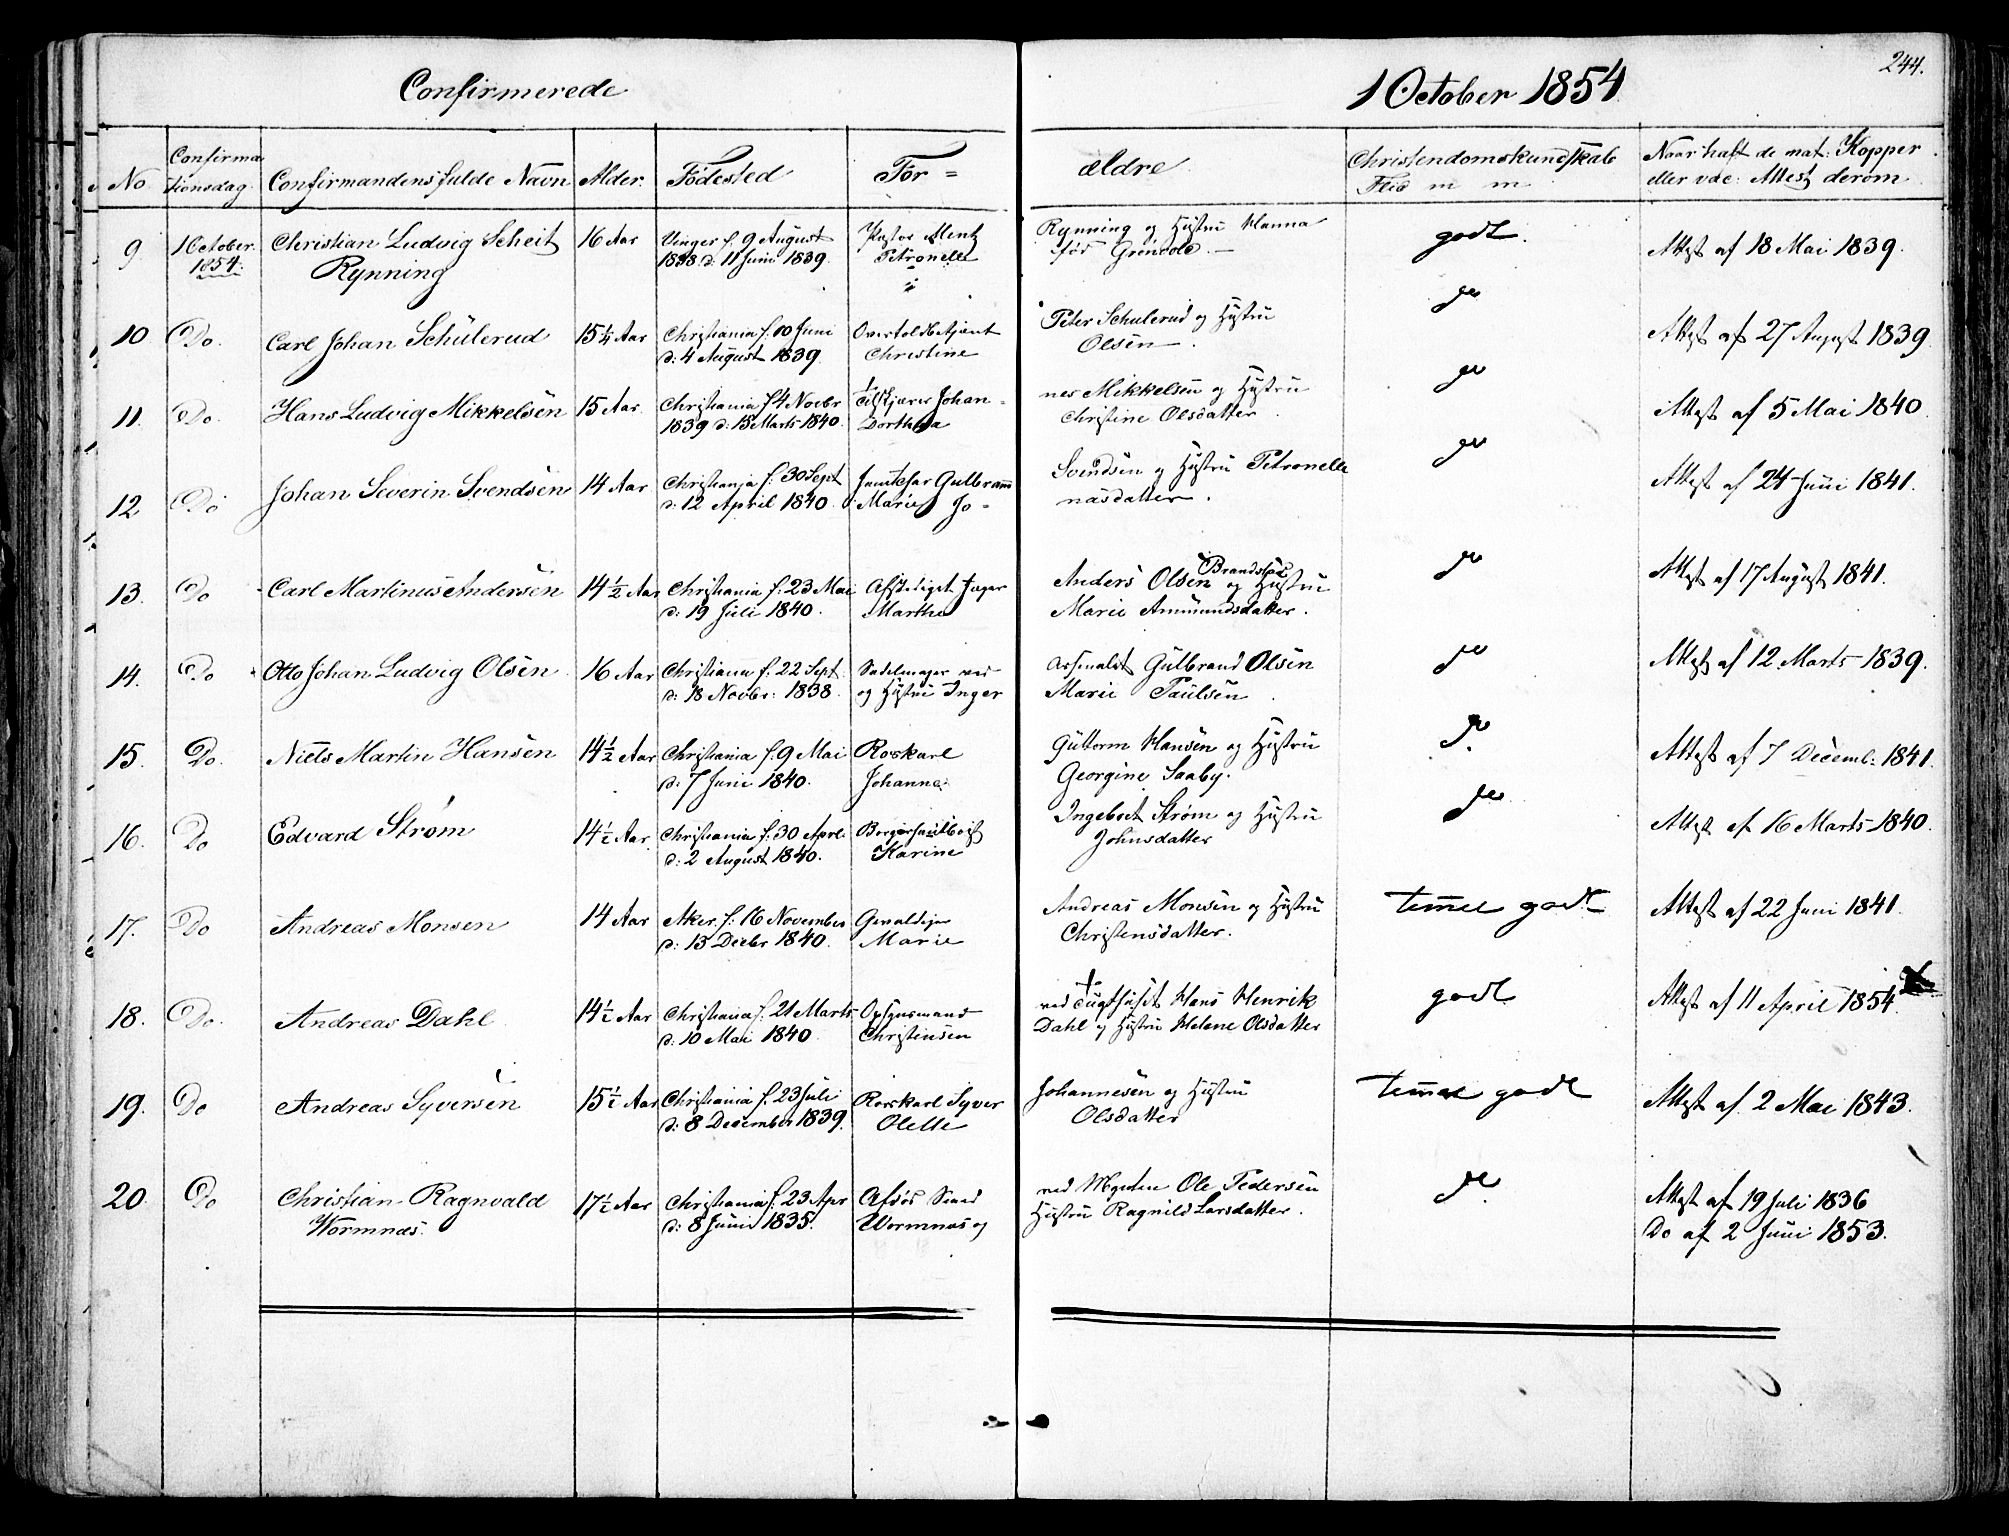 Confirmerede
1 October 1854
244.
No
Confirma
tionsdag
Confirmandens fulde Navn
Alder.
Fødested
For=
ældre
Christendomskundskab
Flid m m
Naar haft de nat: Kopper
eller vac: Attest derom
9. 1 October 1854. Christian Ludvig Scheit 16 Aar Vinger f. 9 August Pastor Mentz Rynning og Hustru Hanna godt. Attest af 18 Mai 1839.
Rynning 1838 d: 11 Juni 1839. Petronelle fød Grønvold.
10 Do. Carl Johan Schülerud 15 1/4 Aar Christiania f. 10 Juni Overtoldbetjent Peter Schulerud og Hustru do Attest af 27 August 1839
d: 4 August 1839. Christine Olsen.
11. Do. Hans Ludvig Mikkelsen 15 Aar. Christiania f 4 Novbr Johan= nes Mikkelsen og Hustru do Attest af 5 Mai 1840.
1839 d: 15 Marts 1840. Dorthea Christine Olsdatter.
12 Do Johan Severin Svendsen 14 Aar Christiania f. 30 Sept Gulbrand Svendsen og Hustru Petronelle do Attest af 24 Juni 1841.
d: 12 April 1840. Marie Jo= nasdatter.
13. Do Carl Martinus Andersen 14 1/2 Aar Christiania f. 23 Mai Afskediget Jæger Anders Olsen Brandslæt og Hustru do Attest af 17 August 1841.
d: 19 Juli 1840. Marthe Marie Ammundsdatter.
14. Do Otto Johan Ludvig Olsen 16 Aar Christiania f. 22 Sept. Sadelmager ved Arsenalet Gulbrand Olsen do Attest af 12 Marts 1839.
d: 18 Novbr: 1838. og Hustru Inger Marie Paulsen.
15. Do. Niels Martin Hansen 14 1/2 Aar Christiania f. 9 Mai Roskarl Guttorm Hansen og Hustru do. Attest af 7 Decemb: 1841.
d: 7 Juni 1840. Johanne Georgine Saaby.
16. Do Edvard Strøm 14 1/2 Aar. Christiania f. 30 April Ingebret Strøm og Hustru do Attest af 16 Marts 1840.
d: 2 August 1840. Karine Johnsdatter
17. Do Andreas Monsen 14 Aar Aker f: 16 November Andreas Monsen og Hustru temmel godt Attest af 22 Juni 1841.
d: 13 Decbr 1840. Marie Christensdatter.
18. Do. Andreas Dahl 14 1/2 Aar Christiania f. 21 Marts Opsynsmand ved Tugthuset Hans Henrik godt Attest af 11 April 1854.
d: 10 Mai 1840. Christensen Dahl og Hustru Helene Olsdatter
19. Do Andreas Syversen 15 1/2 Aar Christiania f. 23 Juli Roskarl Syver Johannesen og Hustru temmel godt Attest af 2 Mai 1843.
d: 8 December 1839. Olette Olsdatter
20. Do Christian Ragnvald 17 1/2 Aar Christiania f. 23 Apr Afdøde ved Mynten Ole Pedersen do. Attest af 19 Juli 1836
Wormnæs. d: 8 Juni 1835. Wormnæs og Hustru Ragnild Larsdatter. Do af 2 Juni 1853.